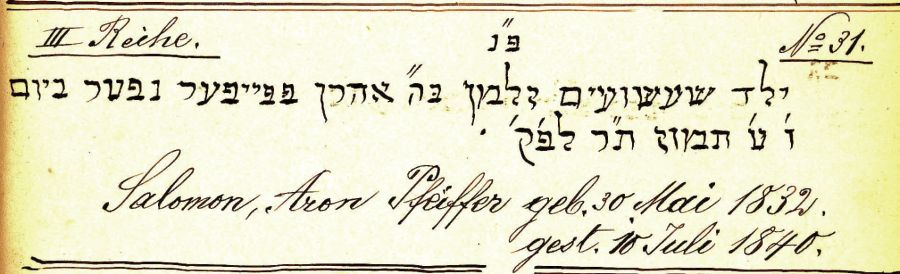 III Reihe. פ"נ No 31.
ילד שעשועים זלמן בה" אהרן פפייפער נפטר ביום
ו' ט' תמוז ת"ר לפ'ק'.
Salomon, Aron Pfeiffer geb. 30 Mai 1832.
gest. 10 Juli 1840.